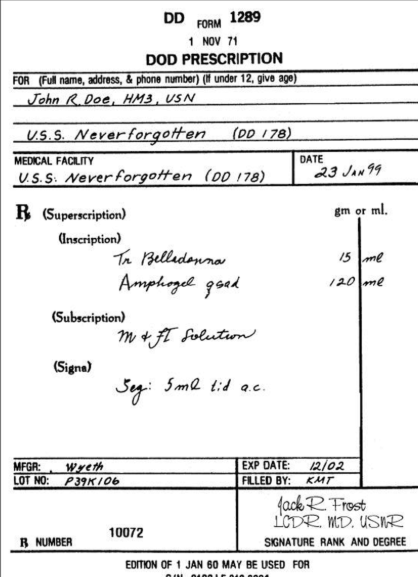 DD FORM 1289
1 NOV 71
DOD PRESCRIPTION
FOR (Full name, address, & phone number) (If under 12, give age)
John R. Doe, HM3, USN
U.S.S. Neverforgotten (DD 178)
MEDICAL FACILITY
U.S.S. Neverforgotten (DD 178)
DATE
23 JAN 99
℞ (Superscription) gm or ml.
(Inscription)
Tr Belladonna 15 ml
Amphogel qsad 120 ml
(Subscription)
M & Ft Solution
(Signa)
Sig: 5ml tid a.c.
MFGR: Wyeth EXP DATE: 12/02
LOT NO: P39K106 FILLED BY: KMT
Jack R. Frost
LCDR. MD. USNR
10072
℞ NUMBER SIGNATURE RANK AND DEGREE
EDITION OF 1 JAN 60 MAY BE USED FOR